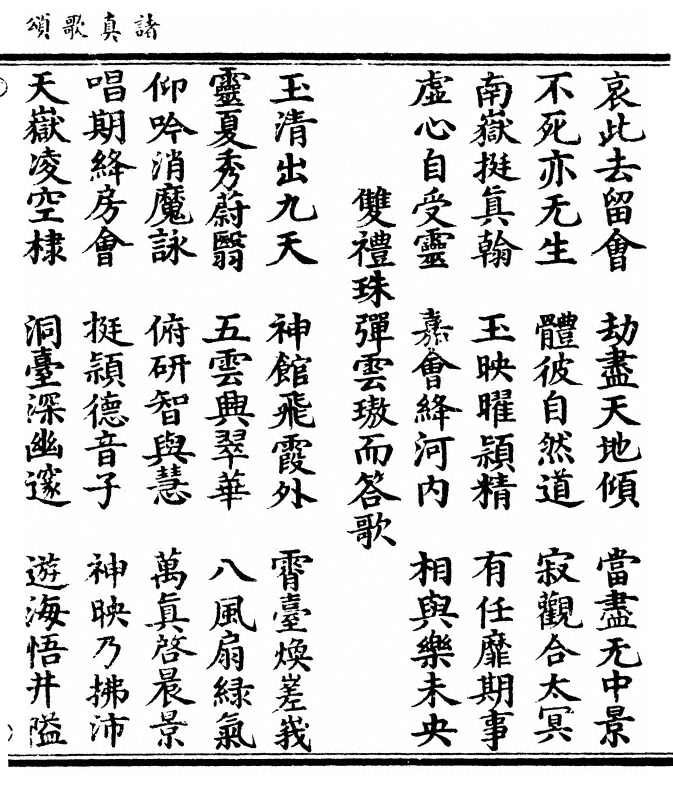 諸真歌頌
哀此去留會 劫盡天地傾 當盡无中景
不死亦无生 體彼自然道 寂觀合太冥
南嶽挺眞翰 玉映曜穎精 有任靡期事
虛心自受靈 嘉會絳河內 相與樂未央
雙禮珠彈雲璈而答歌
玉清出九天 神館飛霞外 霄臺煥嵳峩
靈夏秀蔚翳 五雲興翠華 八風扇綠氣
仰吟消魔詠 俯研智與慧 萬眞啓晨景
唱期絳房會 挺穎德音子 神映乃拂沛
天嶽凌空棣 洞臺深幽邃 遊海悟井隘